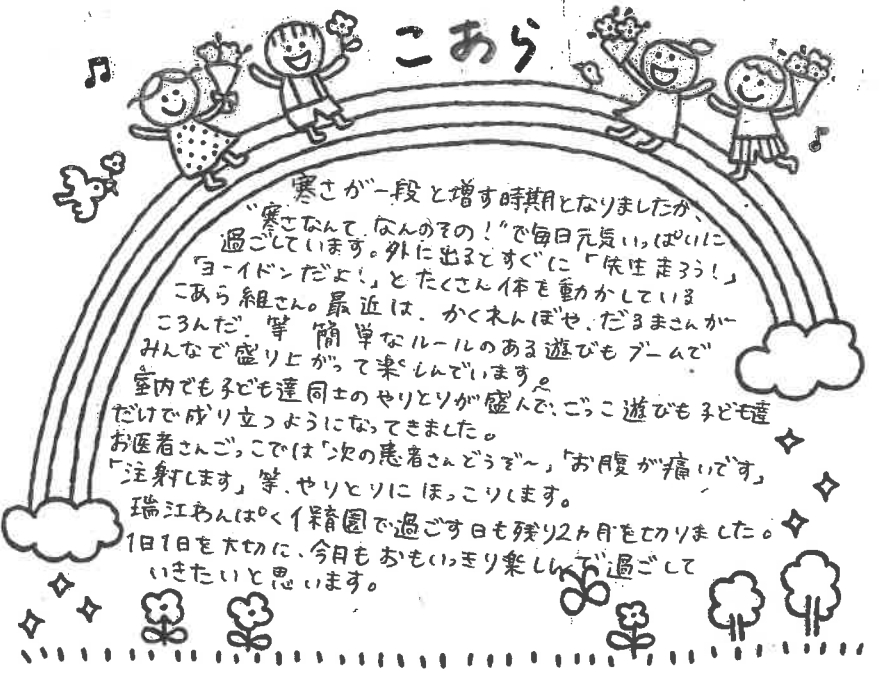 こあら
寒さが一段と増す時期となりましたが、
"寒さなんて なんのその！"で毎日元気いっぱいに
過ごしています。外に出るとすぐに「先生走ろう！」
「ヨーイドンだよ！」とたくさん体を動かしている
こあら組さん。最近は、かくれんぼや、だるまさんが
ころんだ、等 簡単なルールのある遊びもブームで
みんなで盛り上がって楽しんでいます。
室内でも子ども達同士のやりとりが盛んで、ごっこ遊びも子ども達
だけで成り立つようになってきました。
お医者さんごっこでは「次の患者さんどうぞ〜」「お腹が痛いです」
「注射します」等、やりとりにほっこりします。
瑞江わんぱく保育園で過ごす日も残り2ヵ月を切りました。
1日1日を大切に、今月もおもいっきり楽しんで過ごして
いきたいと思います。